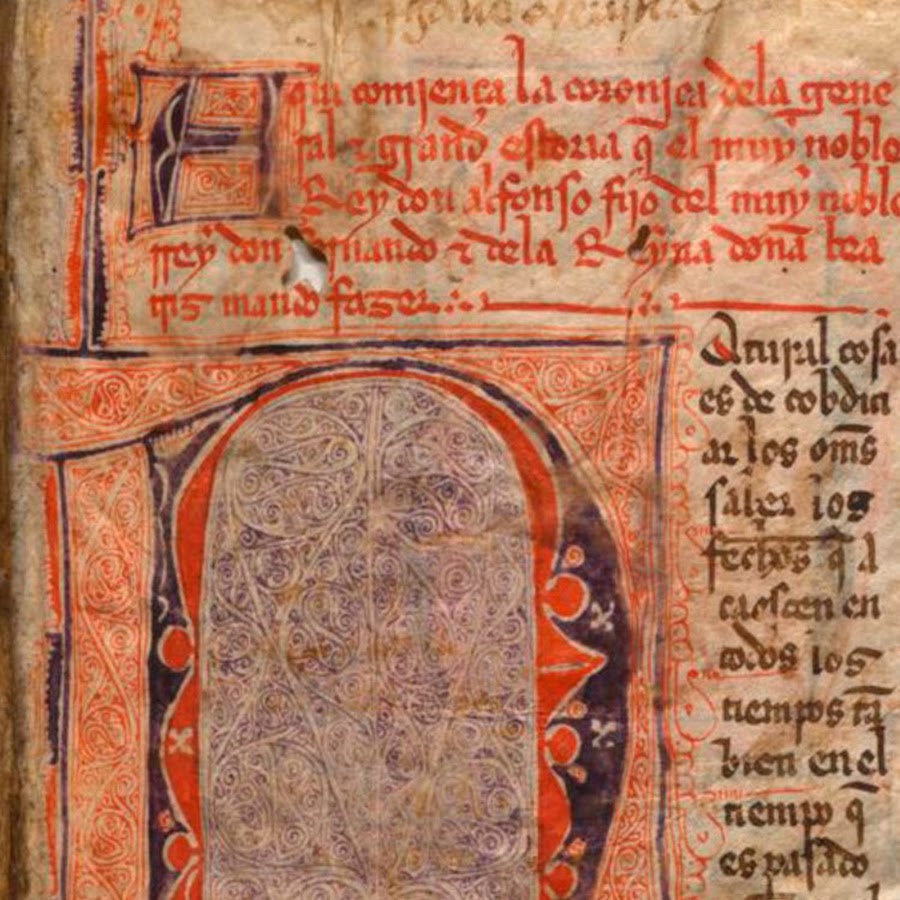 Aqui comjença la coronjca dela gene
ral ⁊ grand estoria q̄ el muy noble
Rey don alfonso fijo del muy noble
rrey don fernando ⁊ dela Reyna doña bea
tris mando fazer
Naturał cosa
es de cobdiçi
ar los om̄s
saber los
fechos q̄ a
caesçen en
todos los
tiempos tā
bien en el
tiempo q̄
es pasado